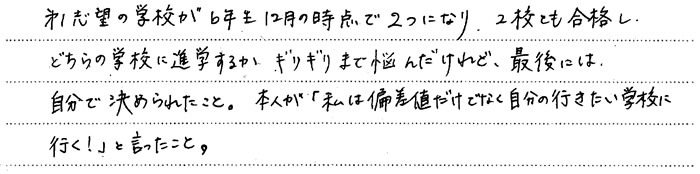 第1志望の学校が6年生12月の時点で2つになり、2校とも合格し、
どちらの学校に進学するか、ギリギリまで悩んだけれど、最後には、
自分で決められたこと。本人が「私は偏差値だけでなく自分の行きたい学校に
行く!」と言ったこと。